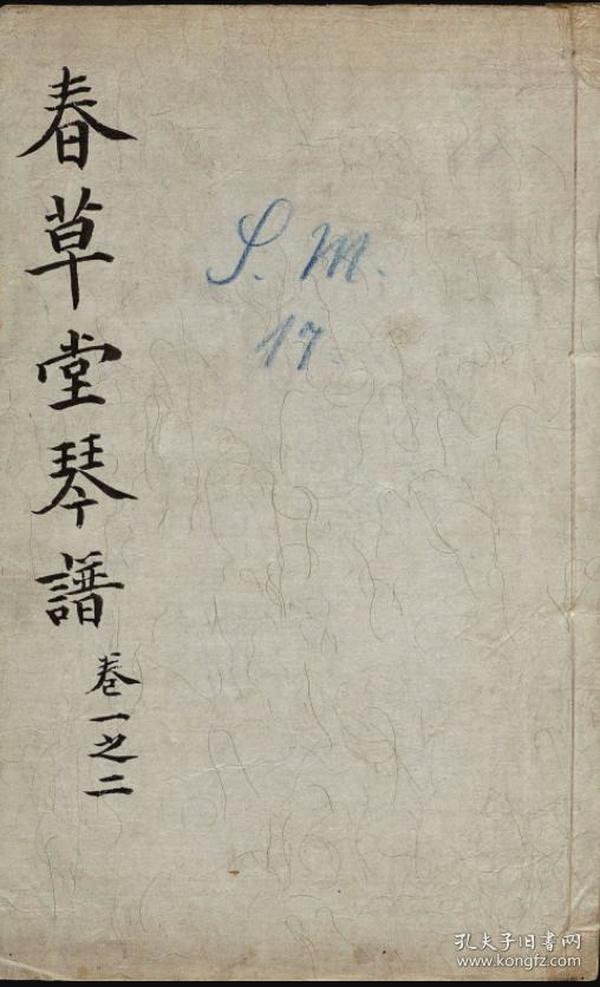 春草堂琴譜
卷一之二
S. M.
17.
孔夫子旧书网
www.kongfz.com